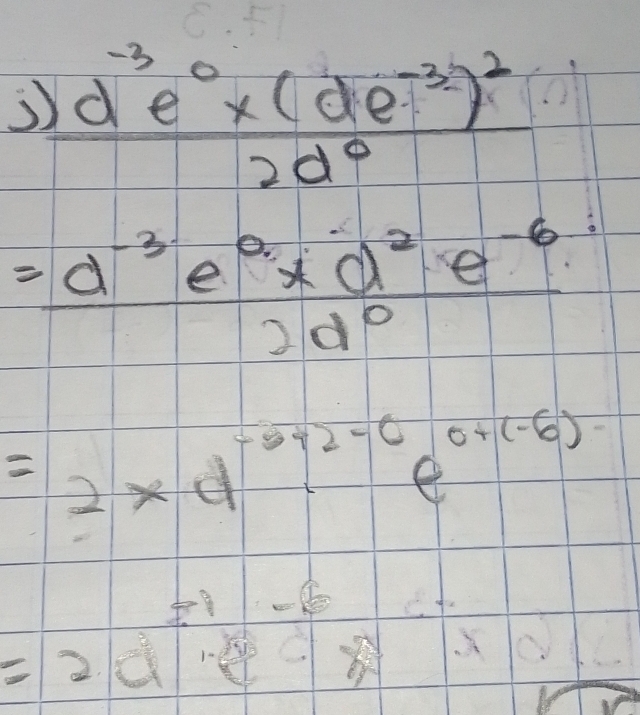 j) d⁻³ e⁰ × (de⁻³)²
2d⁰
= d⁻³ e⁰ × d² e⁻⁶
2d⁰
= 2 × d⁻³⁺²⁻⁰ e⁰⁺⁽⁻⁶⁾
= 2d⁻¹ e⁻⁶